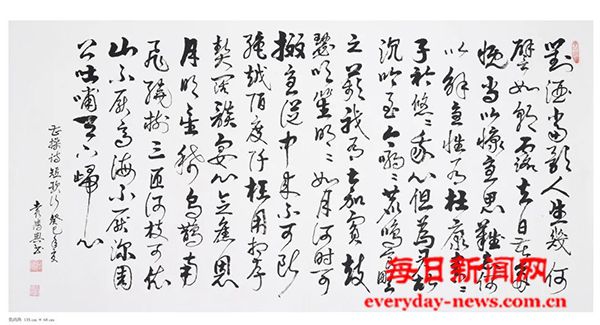 對酒當歌人生幾何
譬如朝露去日苦多
慨當以慷憂思難忘何
以解憂惟有杜康青々
子衿悠々我心但為君故
沉吟至今呦々鹿鳴食野
之苹我有嘉賓鼓
瑟吹笙明々如月何時可
掇憂從中來不可斷
絕越陌度阡枉用相存
契闊談讌心念舊恩
月明星稀烏鵲南
飛繞樹三匝何枝可依
山不厭高海不厭深周
公吐哺天下歸心
曹操詩短歌行 癸巳年夏
每日新闻网
everyday-news.com.cn